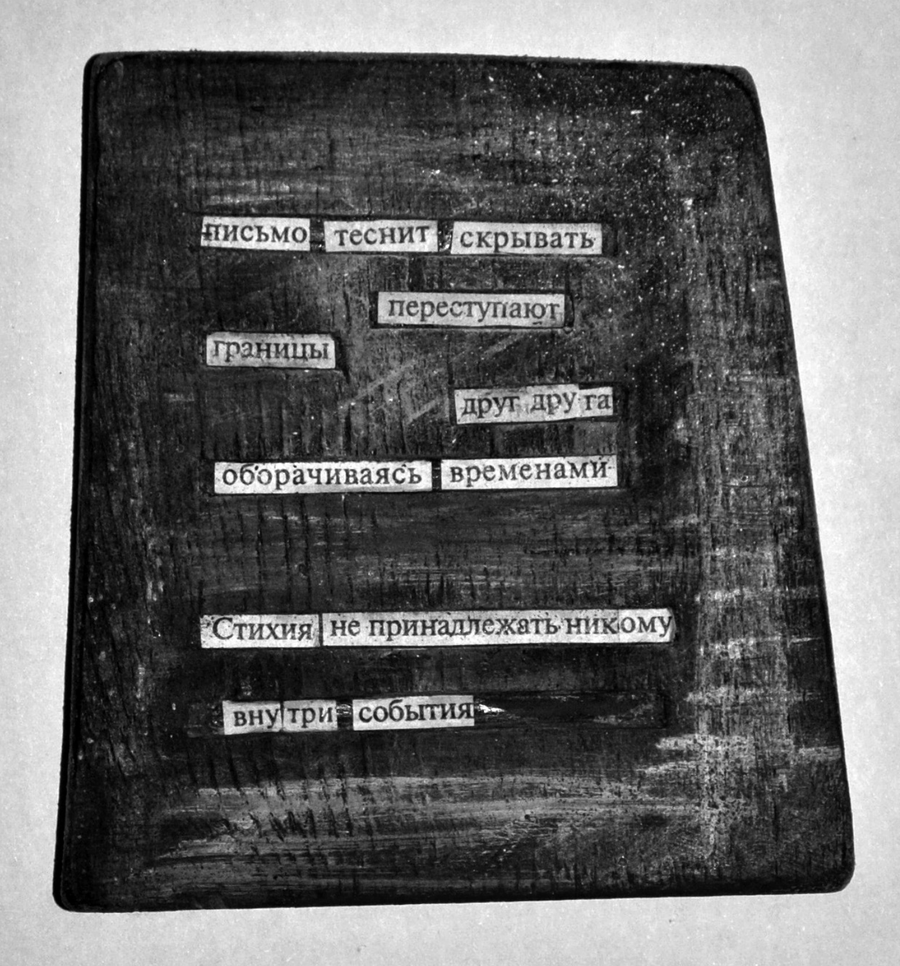 письмо теснит скрывать
переступают
границы
друг друга
оборачиваясь временами
Стихия не принадлежать никому
внутри события